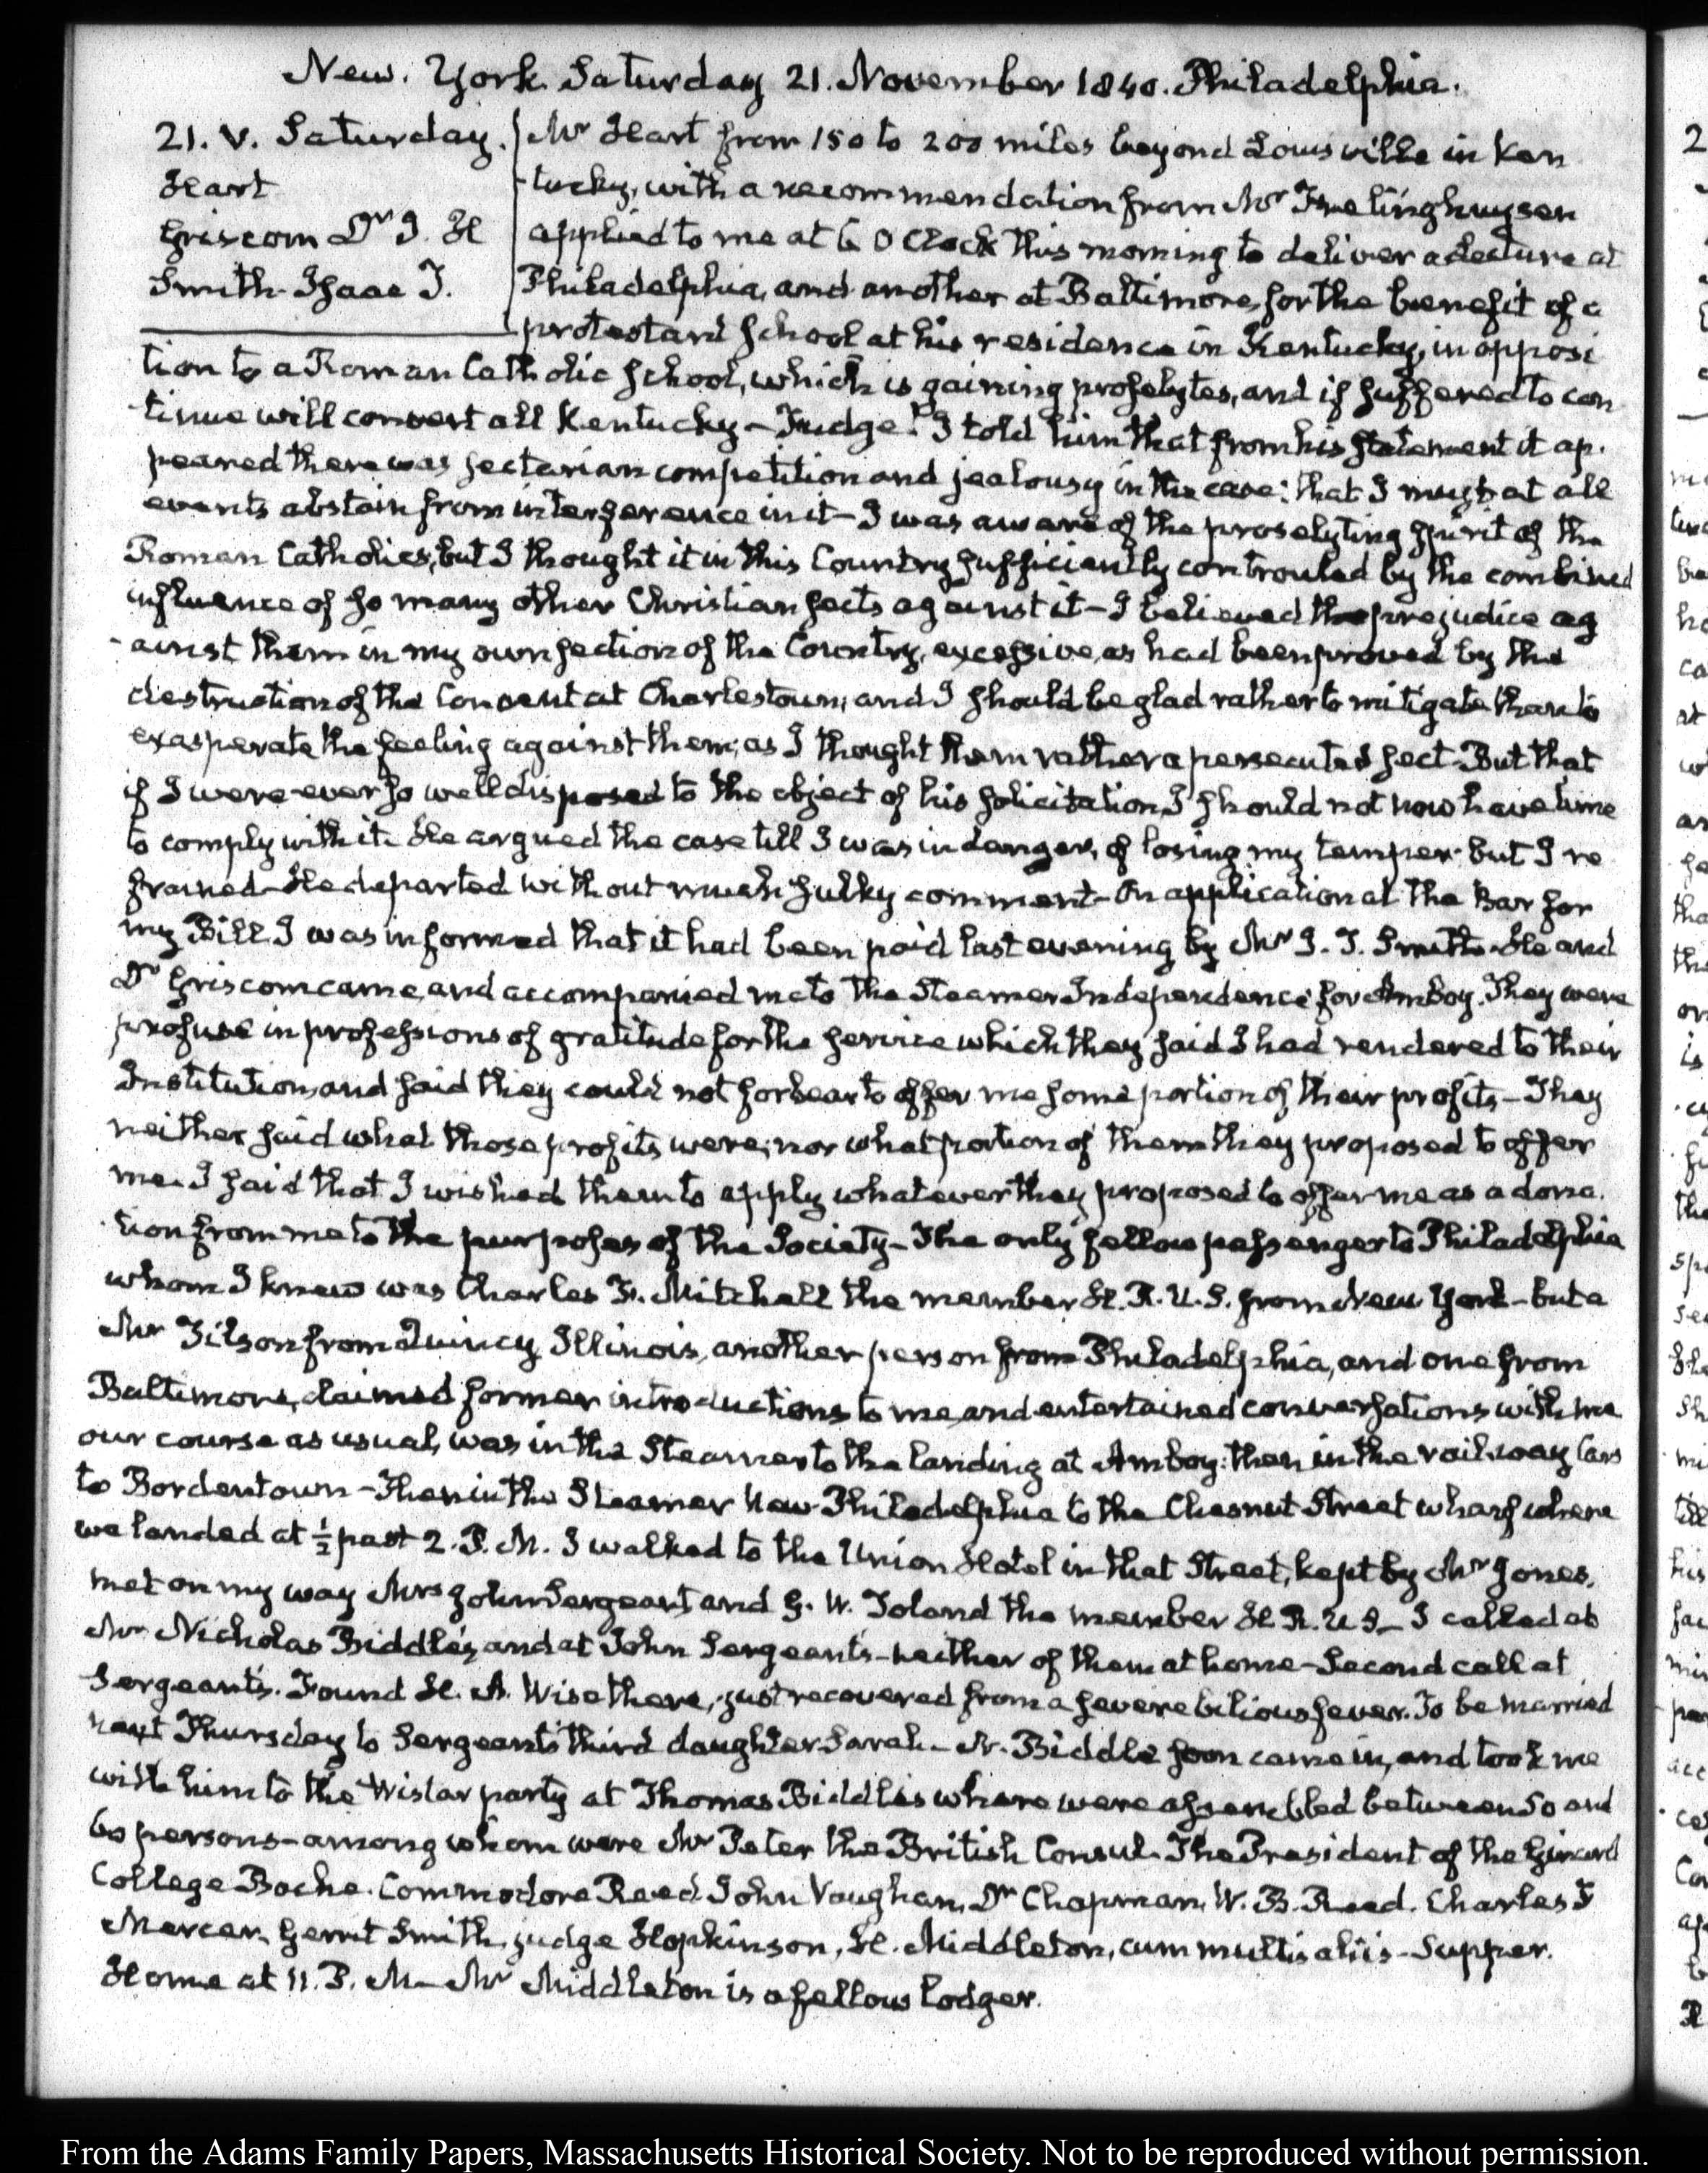 New. York. Saturday 21. November 1840. Philadelphia.
21. V. Saturday.
Heart
Griscom Dr J. H
Smith Isaac T.
Mr Heart from 150 to 200 miles beyond Louisville in Ken
-tucky, with a recommendation from Mr Frelinghuysen
applied to me at 6 O Clock this morning to deliver a lecture at
Philadelphia, and another at Baltimore, for the benefit of a
protestant School at his residence in Kentucky, in opposi
tion to a Roman Catholic School, which is gaining proselytes, and if suffered to con
-tinue will convert all Kentucky - Fudge! I told him that from his statement it ap.
peared there was sectarian competition and jealousy in the case: that I must at all
events abstain from interference in it - I was aware of the proselyting spirit of the
Roman Catholics, but I thought it in this Country sufficiently controuled by the combined
influence of so many other Christian sects against it - I believed the prejudice ag
-ainst them in my own section of the Country, excessive, as had been proved by the
destruction of the Convent at Charlestown, and I should be glad rather to mitigate than to
exasperate the feeling against them; as I thought them rather a persecuted sect - But that
if I were ever so well disposed to the object of his solicitation, I should not now have time
to comply with it. He argued the case till I was in danger, of losing my temper - but I re
frained - He departed without much sulky comment - On application at the Bar for
my Bill. I was informed that it had been paid last evening by Mr I. T. Smith - He and
Dr Griscom came, and accompanied me to the Steamer Independence for Amboy. They were
profuse in professions of gratitude for the service which they said I had rendered to their
Institution, and said they could not forbear to offer me some portion of their profits - They
neither said what those profits were, nor what portion of them they proposed to offer
me. I said that I wished them to apply whatever they proposed to offer me as a dona.
-tion from me to the purposes of the Society - The only fellow passenger to Philadelphia
whom I knew was Charles F. Mitchell the member H. R. U. S. from New York - but a
Mr Tilson from Quincy Illinois, another person from Philadelphia, and one from
Baltimore, claimed former introductions to me, and entertained conversations with me
our course as usual, was in the Steamer to the landing at Amboy: then in the railway Cars
to Bordentown - Then in the Steamer New Philadelphia to the Chesnut Street wharf where
we landed at ½ past 2. P. M. I walked to the Union Hotel in that Street, kept by Mr Jones.
met on my way Mrs John Sergeant and G. W. Toland the member H R. U S - I called at
Mr Nicholas Biddle's, and at John Sergeant's - neither of them at home - Second call at
Sergeant's. Found H. A. Wise there, just recovered from a severe bilious fever. To be married
next Thursday to Sergeant's third daughter Sarah - N. Biddle soon came in, and took me
with him to the Wistar party at Thomas Biddle's where were assembled between 50 and
60 persons - among whom were Mr Peter the British Consul. The President of the Girard
College Bache. Commodore Read. John Vaughan, Dr Chapman, W. B. Reed. Charles F
Mercer, Gerrit Smith, judge Hopkinson, H. Middleton, cum multis aliis - Supper.
Home at 11. P. M - Mr Middleton is a fellow lodger.
From the Adams Family Papers, Massachusetts Historical Society. Not to be reproduced without permission.